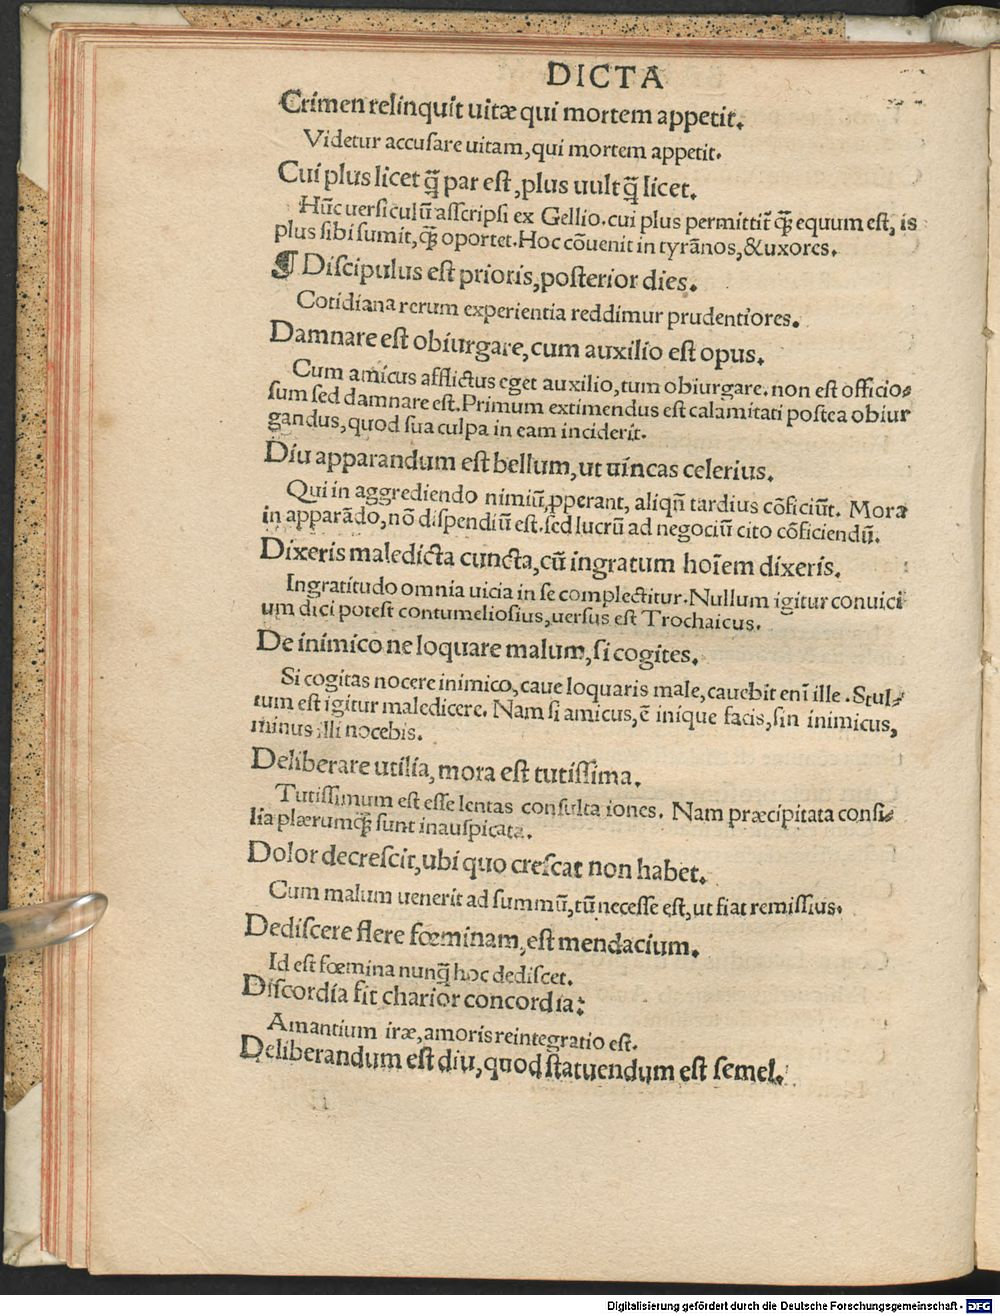 DICTA
Crimen relinquit uitæ qui mortem appetit.
Videtur accuſare uitam, qui mortem appetit.
Cui plus licet q̃ par eſt, plus uult q̃ licet.
Hũc uerſiculũ aſſcripſi ex Gellio. cui plus permittit̃ q̃ equum eſt, is
plus ſibi ſumit, q̃ oportet. Hoc cõuenit in tyrãnos, & uxores.
¶ Diſcipulus eſt prioris, poſterior dies.
Cotidiana rerum experientia reddimur prudentiores.
Damnare eſt obiurgare, cum auxilio eſt opus.
Cum amicus afflictus eget auxilio, tum obiurgare. non eſt officio-
ſum ſed damnare eſt. Primum extimendus eſt calamitati poſtea obiur
gandus, quod ſua culpa in eam inciderit.
Diu apparandum eſt bellum, ut uincas celerius.
Qui in aggrediendo nimiũ, ꝓperant, aliqñ tardius cõficiũt. Mora
in apparãdo, nõ diſpendiũ eſt. ſed lucrũ ad negociũ cito cõficiendũ.
Dixeris maledicta cuncta, cũ ingratum hoĩem dixeris.
Ingratitudo omnia uicia in ſe complectitur. Nullum igitur conuici
um dici poteſt contumelioſius, uerſus eſt Trochaicus.
De inimico ne loquare malum, ſi cogites.
Si cogitas nocere inimico, caue loquaris male, cauebit enĩ ille. Stul-
tum eſt igitur maledicere. Nam ſi amicus, ẽ inique facis, ſin inimicus,
minus illi nocebis.
Deliberare utilia, mora eſt tutiſſima.
Tutiſſimum eſt eſſe lentas conſulta iones. Nam præcipitata conſi-
lia plærumq̃ ſunt inauſpicata.
Dolor decreſcit, ubi quo creſcat non habet.
Cum malum uenerit ad ſummũ, tũ neceſſe eſt, ut fiat remiſſius.
Dediſcere flere fœminam, eſt mendacium.
Id eſt fœmina nunq̃ hoc dediſcet.
Diſcordia fit charior concordia:
Amantium iræ, amoris reintegratio eſt.
Deliberandum eſt diu, quod ſtatuendum eſt ſemel.
Digitalisierung gefördert durch die Deutsche Forschungsgemeinschaft - DFG